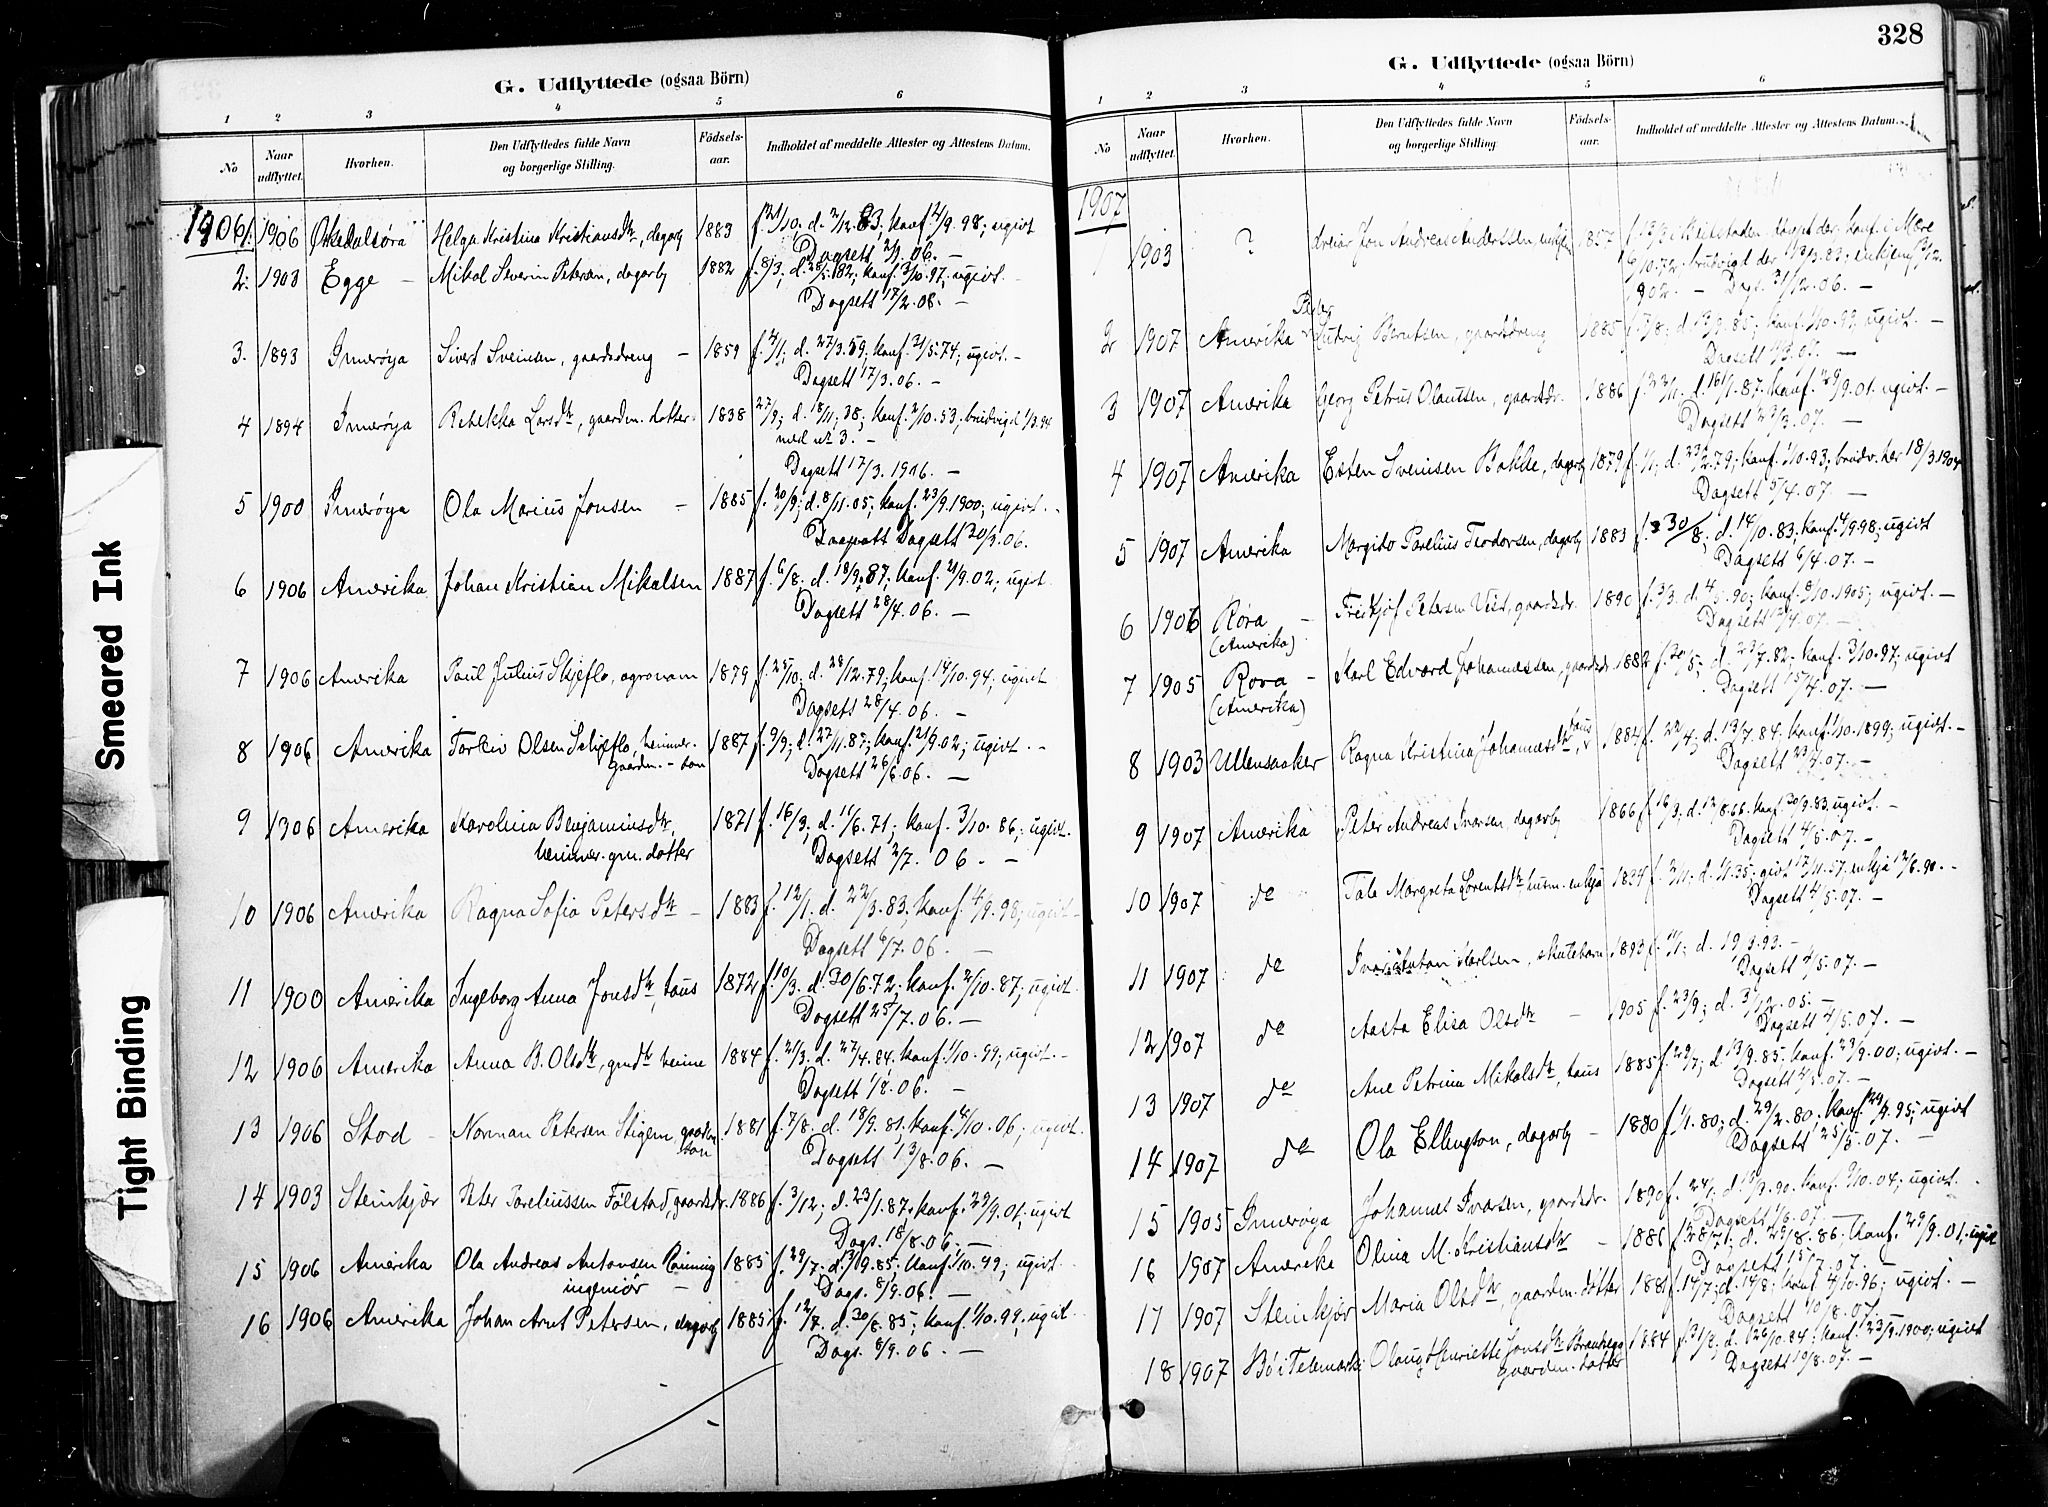 328
G. Udflyttede (ogsaa Börn)
1 2 3 4 5 6
No Naar udflyttet. Hvorhen. Den Udflyttedes fulde Navn og borgerlige Stilling. Födsels-aar. Indholdet af meddelte Attester og Attestens Datum.
1906
1. 1906 Helga Kristina Kristiansdtr, dagarb 1883 f. 21/10. d. 2/12. 83; konf. 4/9. 98; ugivt
Dagsett 2/1. 06. —
2. 1903 Egge — Mikal Severin Petersen, dagarb 1882 f. 8/3; d. 28/5. 82; konf. 3/10. 97; ugivt.
Dagsett 17/2. 06. —
3. 1893 Inneröya Sivert Sveinsen, gaardsdreng — 1859 d. 27/3. 59; konf. 21/5. 74; ugivt. —
Dagsett 17/3. 06. —
4 1894 Inneröya Rebekka Larsdtr, gaardm. dotter 1838 27/9; d. 18/11. 38; konf. 2/10. 53, brudvigd 1/3. 94
med nr 3. —
Dagsett 17/3. 1906. —
5 1900 Inneröya Ola Marius Jonsen — 1885 f. 20/9; d. 8/11. 05; konf. 23/9. 1900; ugivt. —
Dagsett 20/3. 06.
6 1906 Amerika Johan Kristian Mikalsen 1887 f. 6/8; d. 18/9. 87; konf. 21/9. 02; ugivt.
Dagsett 28/4. 06. —
7 1906 Amerika Paul Julius Skjeflo, agronom 1879 f. 25/10; d. 28/12. 79; konf. 14/10. 94; ugivt
Dagsett 28/4. 06. —
8 1906 Amerika Torleiv Olsen Skjeflo, heimver. 1887 f. 9/9; d. 27/11. 87; konf. 21/9. 02; ugivt. —
gaardm. - son
Dagsett 26/6. 06. —
9 1906 Amerika Karolina Benjaminsdtr, 1871 f. 16/3; d. 11/6. 71; konf. 3/10. 86; ugivt.
heimver. gm. dotter
Dagsett 2/7. 06. —
10 1906 Amerika Ragna Sofia Petersdtr — 1883 f. 12/1. d. 22/3. 83; konf. 4/9. 98; ugivt —
Dagsett 6/7. 06. —
11 1900 Amerika Ingeborg Anna Jonsdtr, taus 1872 f. 10/3. d. 30/6. 72; konf. 2/10. 87; ugivt.
Dagsett 25/7. 06. —
12 1906 Amerika Anna B. Olsdtr, gmdtr heime 1884 f. 21/3. d. 27/4. 84. konf. 1/10. 99; ugivt. —
Dagsett 1/8. 06. —
13 1906 Stod — Norman Petersen Stigem, gaardm. 1881 f. 7/8. d. 18/9. 81; konf. 4/10. 06; ugivt.
son
Dagsett 13/8. 06. —
14 1903 Steinkjær Peter Pareliussen Fölstad, gaardsdr. 1886 f. 3/12; d. 23/1. 87; konf. 29/9. 01; ugivt
Dags. 18/8. 06. —
15 1906 Amerika Ola Andreas Antonsen Rönning 1885 f. 29/7. d. 13/9. 85. konf. 1/10. 99; ugivt.
ingeniör —
Dags. 8/9. 06. —
16 1906 Amerika Johan Arnt Petersen, dagarb 1885 f. 12/7. d. 30/8. 85; konf. 1/10. 99; ugivt
Dags. 8/9. 06. —
G. Udflyttede (ogsaa Börn)
1 2 3 4 5 6
No Naar udflyttet. Hvorhen. Den Udflyttedes fulde Navn og borgerlige Stilling. Födsels-aar. Indholdet af meddelte Attester og Attestens Datum.
1907
1 1903 ? dreiar Jon Andreas Anderssen, enkjem 1857 döypt der. konf. i Mære
6/10. 72.
1902. — Dags. 31/12. 06. —
Peder
2 1907 Amerika Ludvig Berntsen, gaardsdreng 1885 f. 7/8; d. 13/9. 85; konf. 1/10. 99; ugivt. —
Dagsett
3 1907 Amerika Georg Petrus Olaussen, gaardsdr. 1886 f. 22/11; d. 16/1. 87. konf. 29/9. 01. ugivt —
Dagsett 23/3. 07. —
4 1907 Amerika Esten Sveinsen Bakke, dagarb 1879 f. 1/1; d. 23/2. 79; konf. 1/10. 93; brudv. her 18/3 1904
Dagsett 5/4. 07. —
5 1907 Amerika Margido Parelius Teodorsen, dagarb 1883 f. 30/8; d. 14/10. 83; konf. 4/9. 98; ugivt
Dagsett 6/4. 07. —
6 1906 Röra — Fritjof Petersen Vist, gaardsdr. 1890 f. 3/3. d. 4/5. 90; konf. 8/10. 1905; ugivt. —
(Amerika)
Dagsett
7 1905 Röra — Karl Edvard Johannessen, gaardsdr. 1882 f. 20/5; d. 23/7. 82; konf. 3/10. 97; ugivt
(Amerika)
Dagsett 15/4. 07. —
8 1903 Ullensaaker Ragna Kristina Johannesdtr, taus 1884 f. 22/4; d. 13/7. 84. konf. 1/10. 1899; ugivt. —
Dagsett 23/4. 07. —
9 1907 Amerika Peter Andreas Iversen, dagarb 1866 f. 16/3; d. 12/8. 66. konf. 30/9. 83. ugivt. —
Dagsett 4/5. 07. —
10 1907 de Tale Margreta Lorentsdtr husm. enkja 1834 f. 2/11; d. 1/1. 35; givt 17/11. 57. enkja 12/6. 90. —
Dagsett 4/5. 07. —
11 1907 de Anton Karlsen, skutebarn 1893 f. 11/1; d. 19/3. 93. —
Dagsett 4/5. 07. —
12 1907 de Aasta Elisa Olsdtr — 1905 f. 23/9; d. 31/12. 05. —
Dagsett 4/5. 07. —
13 1907 de Ane Petrina Mikalsdtr, taus 1885 f. 29/7; d. 13/9. 85. konf. 23/9. 00; ugivt. —
Dagsett 4/5. 07. —
14 1907 de Ola Ellingson, dagarb — 1880 f. 1/1. 80; d. 29/2. 80. konf. 29/9. 95; ugivt
Dagsett 25/5. 07. —
15 1905 Inneröya Johannes Ivarsen, gaardsdr. 1890 konf. 9/10. 04; ugivt. —
Dagsett 1/6. 07. —
16 1907 Amerika Olina M. Kristiansdtr — 1886 f. 28/7; d. 29/8. 86. konf. 29/9. 01; ugivt
Dagsett 15/7. 07. —
17 1907 Steinkjær Maria Olsdtr, gaardm. dotter 1881 f. 14/7; d. 14/8; konf. 4/10. 96; ugivt. —
Dagsett 10/8. 07. —
18 1907 Bö i Telemark Olaug Henriette Jonsdtr 1884 f. 31/8; d. 26/10. 84; konf. 23/9. 1900; ugivt
gaardm. dotter
Dagsett 10/8. 07. —
Smeared Ink
Tight Binding